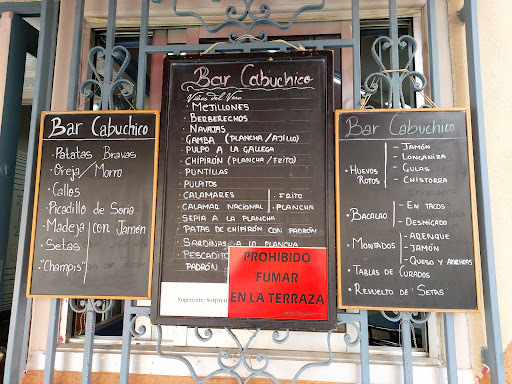 Bar Cabuchico
• Patatas Bravas
• Oreja / Morro
• Callos
• Picadillo de Soria
• Madeja con Jamón
• Setas
• "Champis"
Bar Cabuchico
• Mejillones
• Berberechos
• Navajas
• Gamba (Plancha / Ajillo)
• Pulpo a la Gallega
• Chipirón (Plancha / Frito)
• Puntillas
• Pulpitos
• Calamares
• Calamar Nacional
• Frito
• Plancha
• Sepia a la Plancha
• Patas de Chipirón con Padrón
• Sardinas a la Plancha
• Pescadito
Padrón
PROHIBIDO
FUMAR
EN LA TERRAZA
Bar Cabuchico
• Huevos Rotos
- Jamón
- Longaniza
- Gulas
- Chistorra
• Bacalao
- En Tacos
- Desmigado
• Montados
- Arenque
- Jamón
- Queso y Anchoas
• Tablas de Curados
• Revuelto de Setas